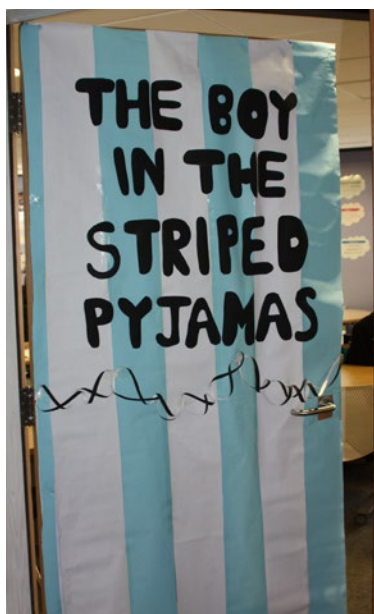 THE BOY
IN THE
STRIPED
PYJAMAS